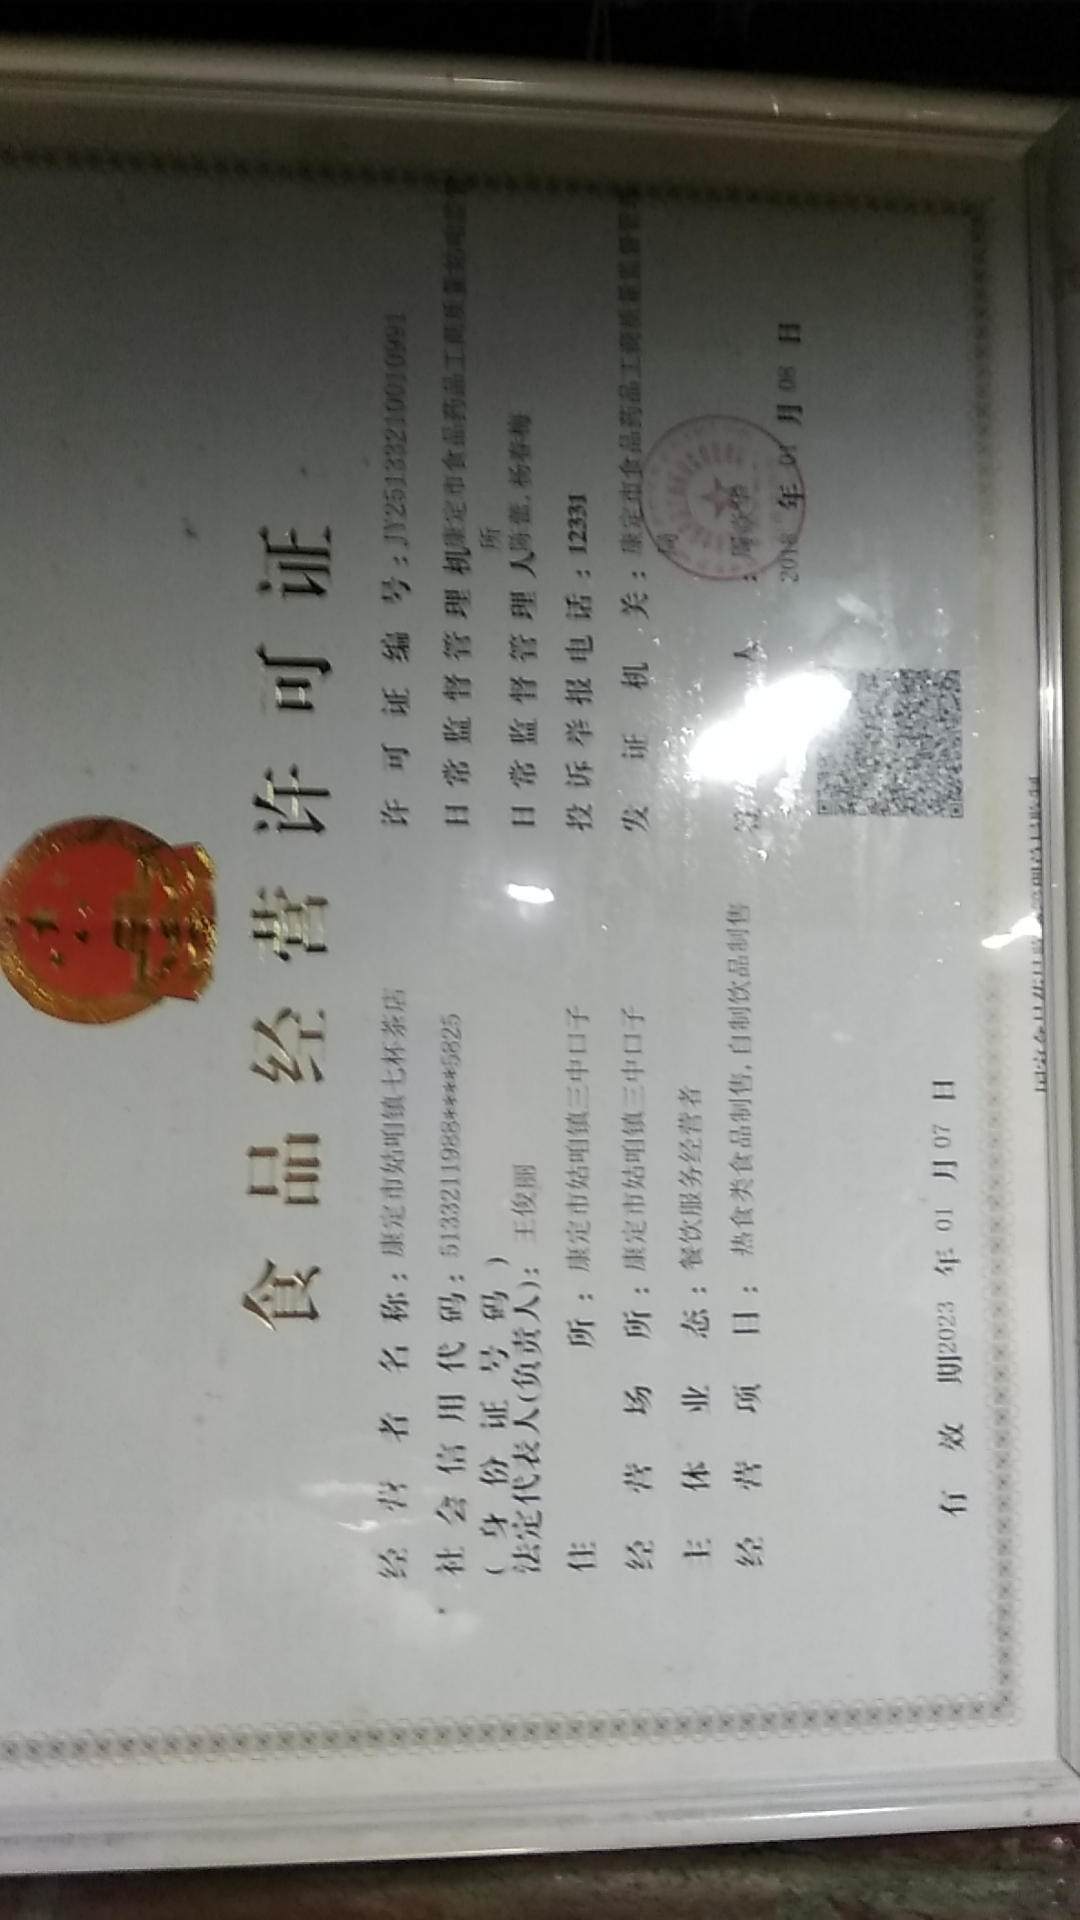 食品经营许可证
经营者名称：康定市姑咱镇七杯茶店
社会信用代码：5133211988****5825
（身份证号码）
法定代表人(负责人)：王俊丽
住所：康定市姑咱镇三中口子
经营场所：康定市姑咱镇三中口子
主体业态：餐饮服务经营者
经营项目：热食类食品制售,自制饮品制售
有效期2023年01月07日
许可证编号：JY25133210010991
日常监督管理机康定市食品药品工商质量
所
日常监督管理人 杨春梅
投诉举报电话：12331
发证机关：康定市食品药品工商质量监督管理
局
人：
2018年01月08日